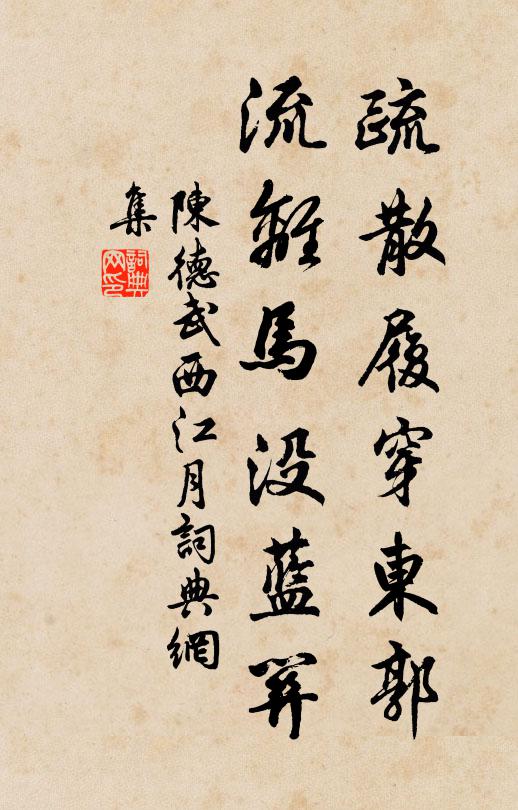 疏散履穿東郭
流離馬没藍關
陳德武西江月詞典網
集
詞典网印